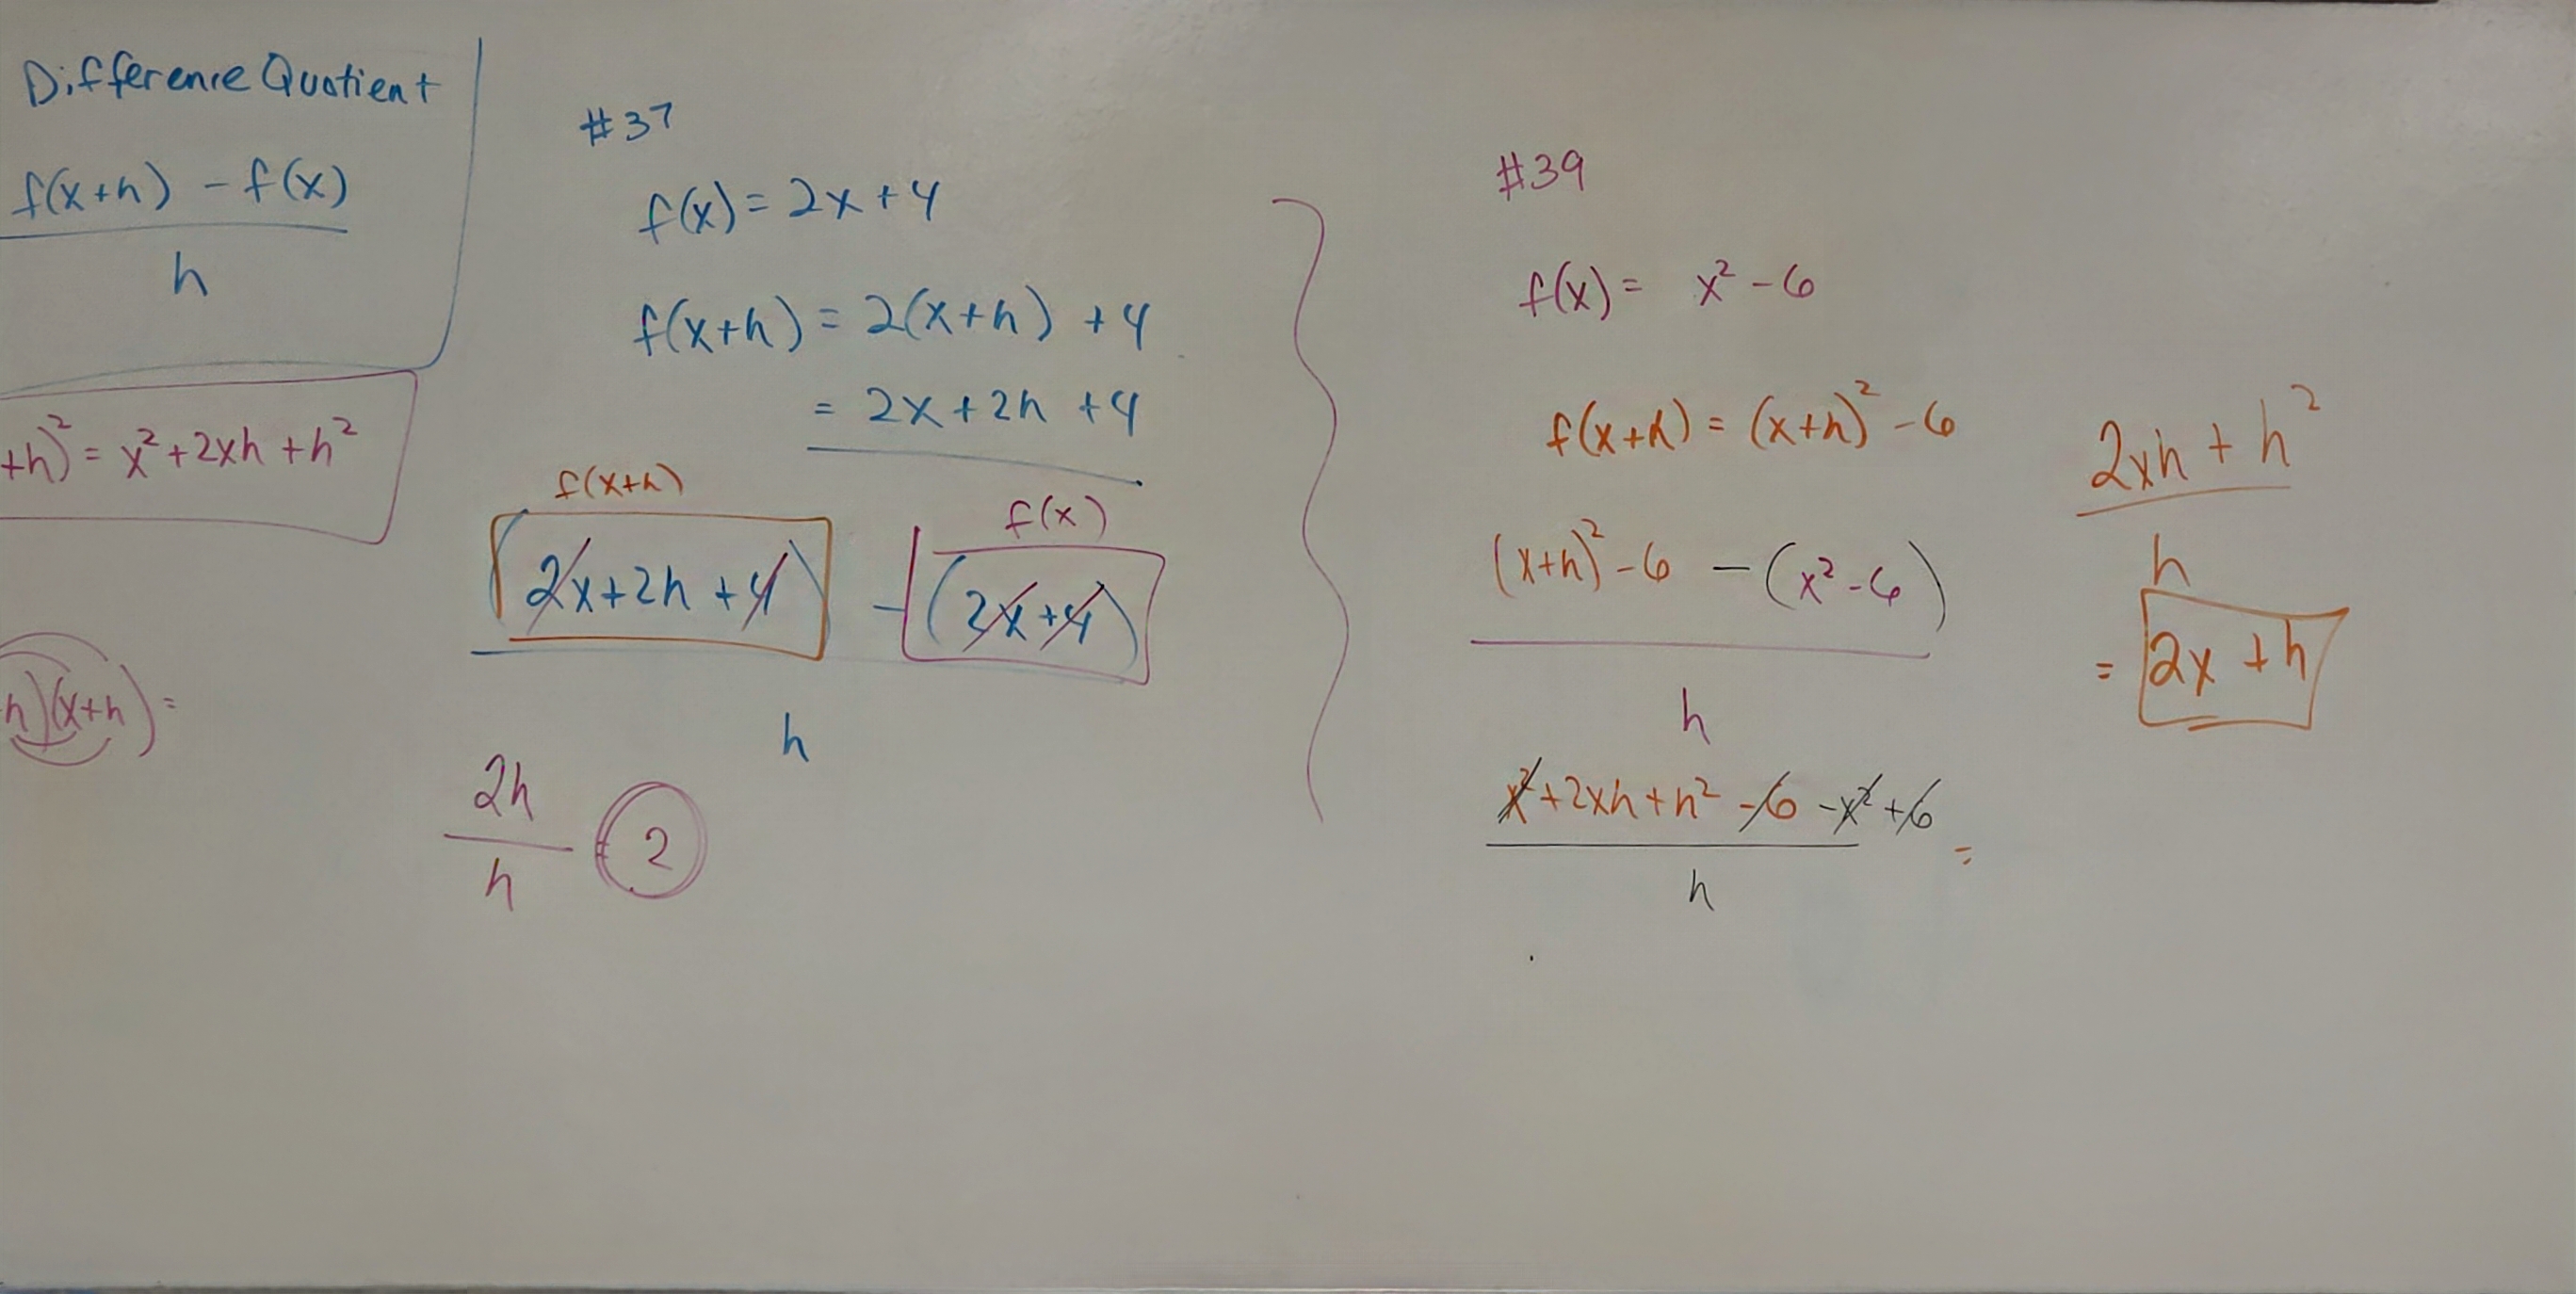 Difference Quotient
f(x+h) - f(x)
h
+h)² = x²+2xh+h²
h)(x+h) =
#37
f(x) = 2x+4
f(x+h) = 2(x+h) +4
= 2x+2h +4
f(x+h)
f(x)
(2x+2h+4) - (2x+4)
h
2h
h
= 2
#39
f(x) = x²-6
f(x+h) = (x+h)²-6
(x+h)²-6 -(x²-6)
h
x²+2xh+h²-6-x²+6
h
=
2xh+h²
h
= 2x+h